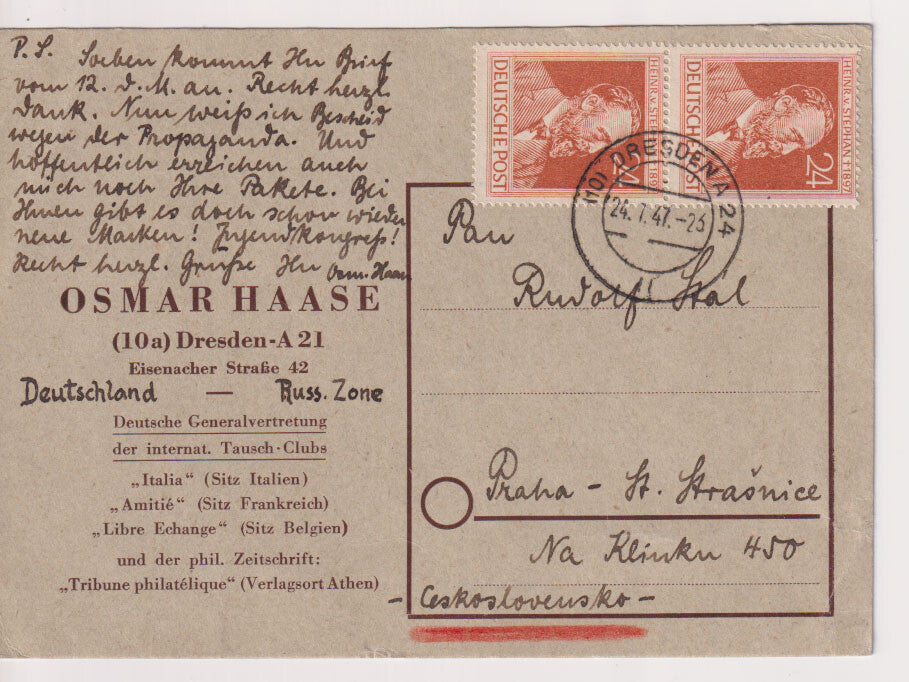 P.S. Soeben kommt Ihr Brief
vom 12. d.M. an. Recht herzl.
Dank. Nun weiß ich Bescheid
wegen der Propaganda. Und
hoffentlich erreichen auch
mich noch Ihre Pakete. Bei
Ihnen gibt es doch schon wieder
neue Marken! Jugendkongreß!
Recht herzl. Grüße Ihr Osm. Haase
OSMAR HAASE
(10a) Dresden-A 21
Eisenacher Straße 42
Deutschland — Russ. Zone
Deutsche Generalvertretung
der internat. Tausch-Clubs
„Italia" (Sitz Italien)
„Amitié" (Sitz Frankreich)
„Libre Echange" (Sitz Belgien)
und der phil. Zeitschrift:
„Tribune philatélique" (Verlagsort Athen)
DEUTSCHE POST
24
HEINR. v. STEPHAN † 1897
DEUTSCHE POST
24
(10) DRESDEN A 24
24.7.47.-23
Pan
Rudolf Stál
Praha - St. Strašnice
Na Klinku 450
- Československo -